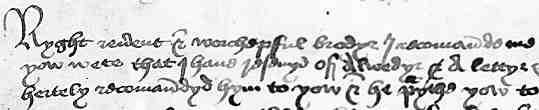 Ryght reuerent & worchepful brodyr I recomaunde me
yow wete that I haue resseyuyd off Alwedyr & A lettyr
hertely recomandyd hym to yow & he preythe yow to